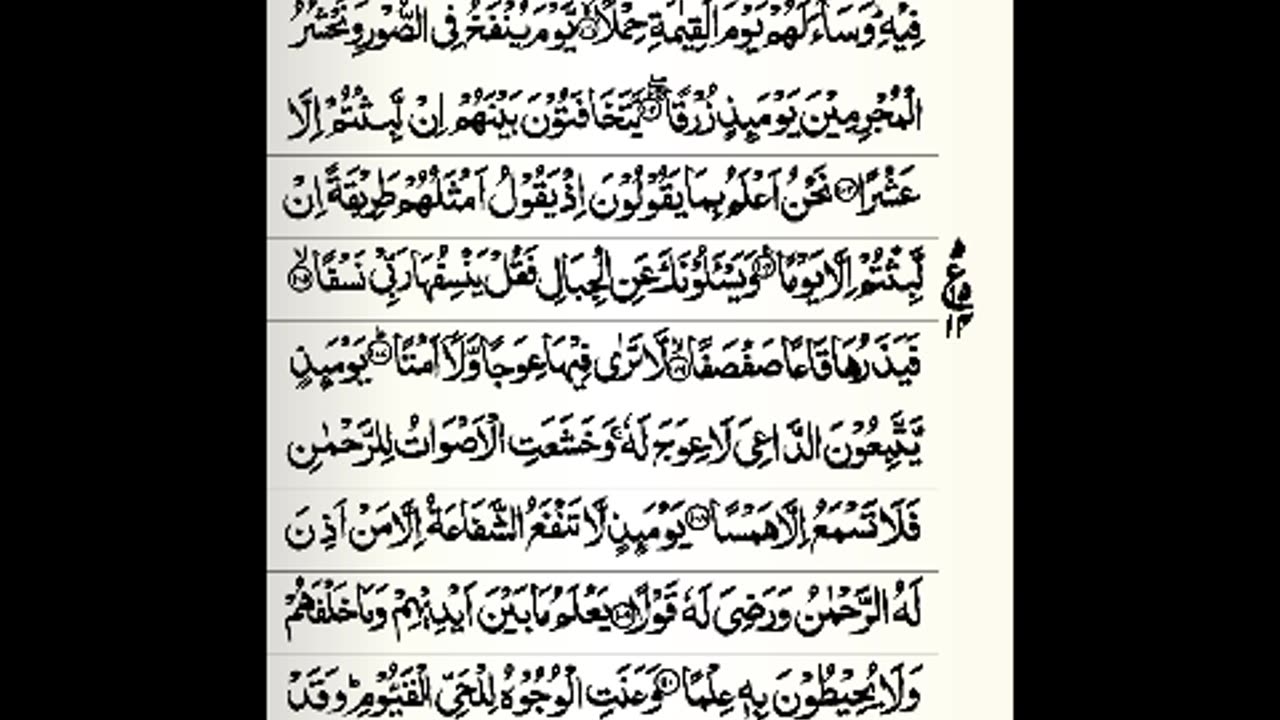 فِيْهِ ؕ وَسَآءَ لَهُمْ يَوْمَ الْقِيٰمَةِ حِمْلًا ۙ﴿۱۰۱﴾ يَّوْمَ يُنْفَخُ فِى الصُّوْرِ وَنَحْشُرُ
الْمُجْرِمِيْنَ يَوْمَئِذٍ زُرْقًا ﴿۱۰۲﴾ يَّتَخَافَتُوْنَ بَيْنَهُمْ اِنْ لَّبِثْتُمْ اِلَّا
عَشْرًا ﴿۱۰۳﴾ نَحْنُ اَعْلَمُ بِمَا يَقُوْلُوْنَ اِذْ يَقُوْلُ اَمْثَلُهُمْ طَرِيْقَةً اِنْ
لَّبِثْتُمْ اِلَّا يَوْمًا ﴿۱۰۴﴾ وَيَسْئَلُوْنَكَ عَنِ الْجِبَالِ فَقُلْ يَنْسِفُهَا رَبِّىْ نَسْفًا ۙ﴿۱۰۵﴾
فَيَذَرُهَا قَاعًا صَفْصَفًا ۙ﴿۱۰۶﴾ لَّا تَرٰى فِيْهَا عِوَجًا وَّلَاۤ اَمْتًا ؕ﴿۱۰۷﴾ يَوْمَئِذٍ
يَّتَّبِعُوْنَ الدَّاعِىَ لَا عِوَجَ لَهٗ ۚ وَخَشَعَتِ الْاَصْوَاتُ لِلرَّحْمٰنِ
فَلَا تَسْمَعُ اِلَّا هَمْسًا ﴿۱۰۸﴾ يَوْمَئِذٍ لَّا تَنْفَعُ الشَّفَاعَةُ اِلَّا مَنْ اَذِنَ
لَهُ الرَّحْمٰنُ وَرَضِىَ لَهٗ قَوْلًا ﴿۱۰۹﴾ يَعْلَمُ مَا بَيْنَ اَيْدِيْهِمْ وَمَا خَلْفَهُمْ
وَلَا يُحِيْطُوْنَ بِهٖ عِلْمًا ﴿۱۱۰﴾ وَعَنَتِ الْوُجُوْهُ لِلْحَىِّ الْقَيُّوْمِ ؕ وَقَدْ